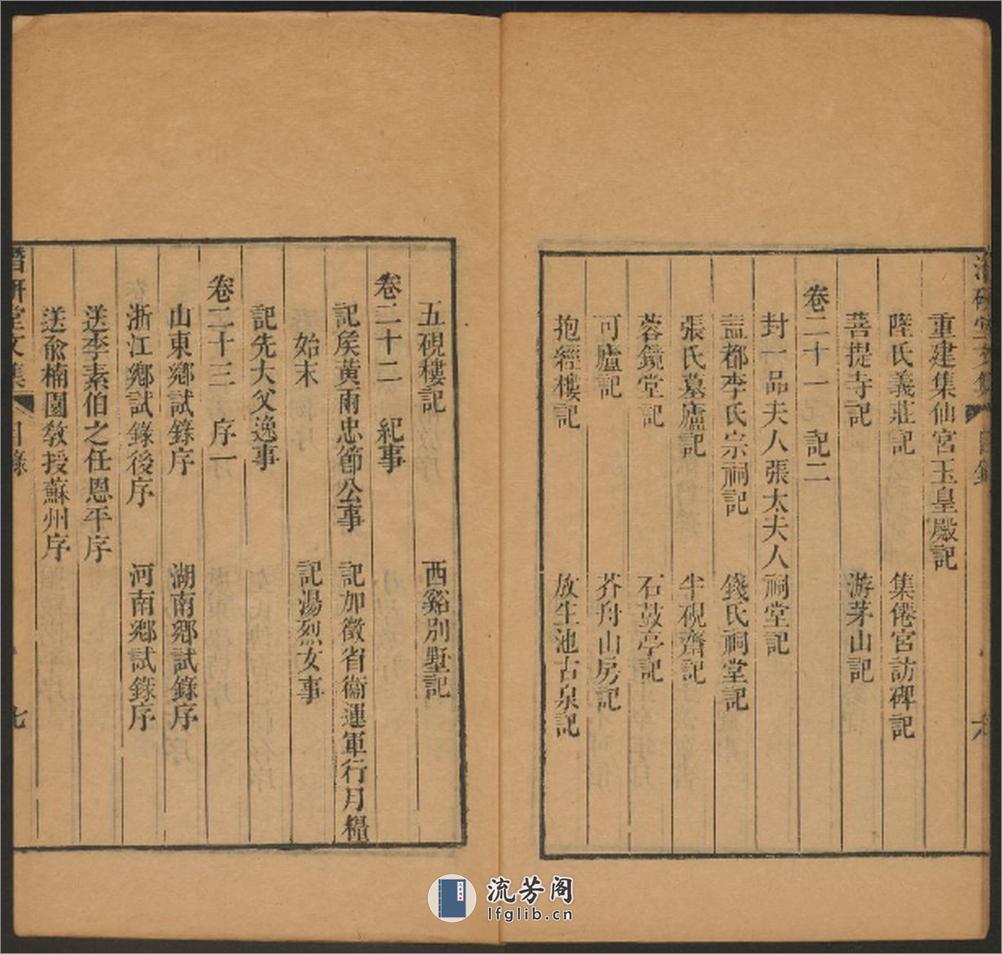 潛研堂文集 目錄 六
重建集仙宮玉皇殿記
陸氏義莊記 集僊宮訪碑記
菩提寺記 游茅山記
卷二十一 記二
封一品夫人張太夫人祠堂記
盖都李氏宗祠記 錢氏祠堂記
張氏墓廬記 半硯齋記
蓉鏡堂記 石鼓亭記
可廬記 芥舟山房記
抱經樓記 放生池古泉記
五硯樓記 西谿別墅記
卷二十二 紀事
記矦黃兩忠節公事 記加徵省衞運軍行月糧
始末 記湯烈女事
記先大父逸事
卷二十三 序一
山東鄉試錄序 湖南鄉試錄序
浙江鄉試錄後序 河南鄉試錄序
送李素伯之任恩平序
送兪楠園敎授蘇州序
潛硏堂文集 目錄 七
流芳阁
lfglib.cn